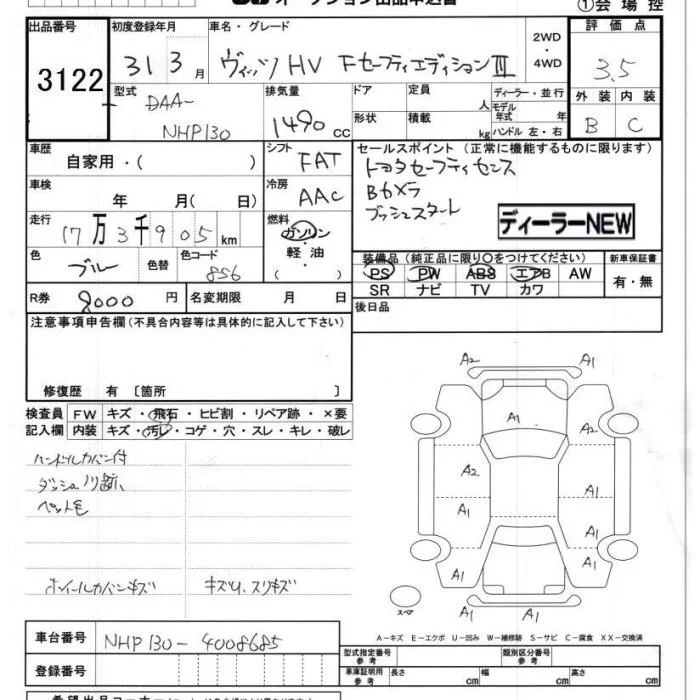 オークション出品申込書
①会場控
出品番号
3122
初度登録年月
31 3月
車名・グレード
ヴィッツHV FセーフティエディションⅢ
2WD
・
4WD
評価点
3.5
外装 内装
B C
型式
DAA-
NHP130
排気量
1490 cc
ドア
定員 人
ディーラー・並行
モデル年式 年
形状
積載 kg
ハンドル 左・右
車歴
自家用・( )
シフト
FAT
セールスポイント (正常に機能するものに限ります)
トヨタセーフティセンス
Bカメラ
プッシュスタート
ディーラーNEW
車検
年 月( 日)
冷房
AAC
走行
17万3千905km
燃料
ガソリン
・
軽油
・
( )
色
ブルー
色替
色コード
8S6
装備品 (純正品に限り○をつけてください)
PS PW ABS エアB AW
SR ナビ TV カワ
新車保証書
有・無
R券
8000円
名変期限 月 日
後日品
注意事項申告欄(不具合内容等は具体的に記入して下さい)
修復歴 有 〔箇所 〕
検査員
記入欄
FW キズ・飛石・ヒビ割・リペア跡・×要
内装 キズ・汚レ・コゲ・穴・スレ・キレ・破レ
ハンドルカバー付
ペット毛
ホイールカバーキズ
キズU、スリキズ
A2 A1
A1
A2
A1
A1
A1
A1
A1
A1
スペア
A−キズ E−エクボ U−凹み W−補修跡 S−サビ C−腐食 XX−交換済
車台番号
NHP130-4008685
登録番号
型式指定番号
参考
類別区分番号
参考
車庫証明用
参考
長さ cm
幅 cm
高さ cm